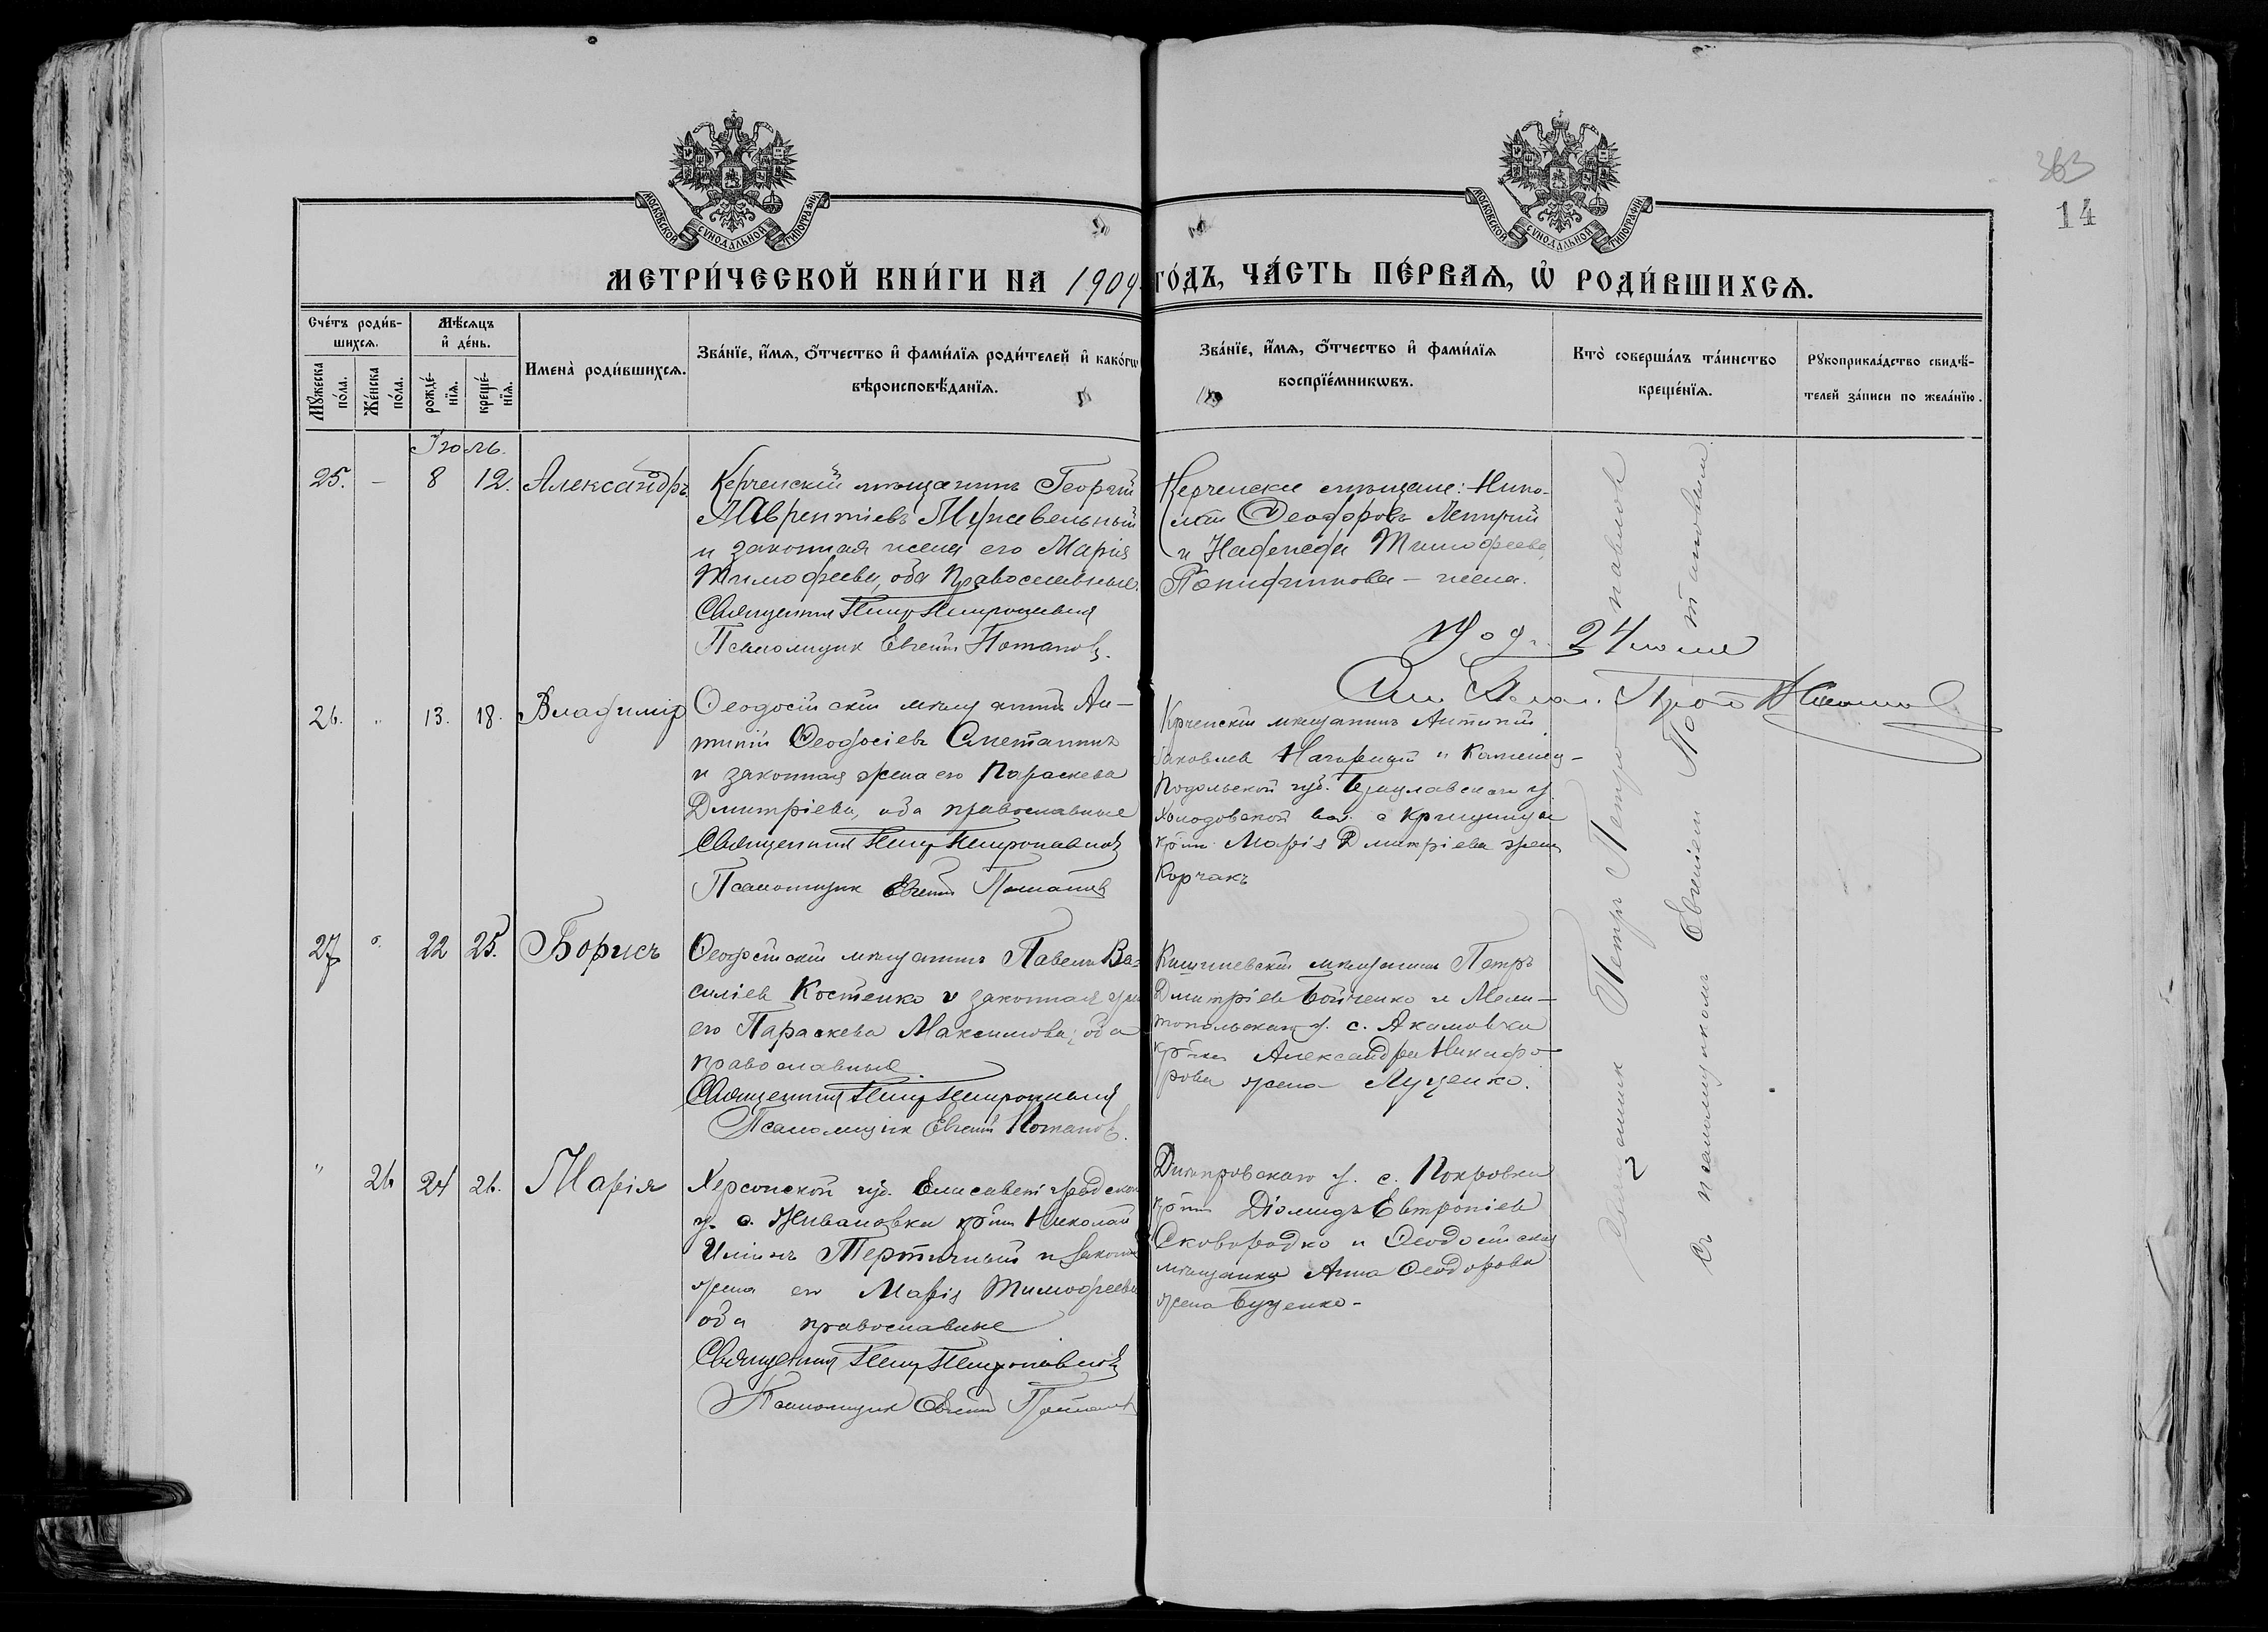 363
14
МОСКОВСКОЙ СѴНОДАЛЬНОЙ ТИПОГРАФІИ
МОСКОВСКОЙ СѴНОДАЛЬНОЙ ТИПОГРАФІИ
МЕТРИ́ЧЕСКОЙ КНИ́ГИ НА 1909 ГО́ДЪ, ЧА́СТЬ ПЕ́РВАѦ, Ѿ РОДИ́ВШИХСѦ.
Сче́тъ роди́в-
шихсѧ.
Мꙋ́жеска по́ла.
Же́нска по́ла.
Мѣ́сѧцъ
и҆ де́нь.
рожде́-
нїѧ.
креще́-
нїѧ.
Имена̀ роди́вшихсѧ.
Зва́нїе, и҆́мѧ, ѻ҆́тчество и҆ фами́лїѧ роди́телей и҆ како́гѡ
вѣроисповѣ́данїѧ.
Зва́нїе, и҆́мѧ, ѻ҆́тчество и҆ фами́лїѧ
воспрїе́мникѡвъ.
Кто̀ соверша́лъ та́инство
креще́нїѧ.
Рꙋкоприкла́дство свидѣ́-
телей за́писи по жела́нїю.
Іюль.
25. — 8 12. Александръ
Керченскій мѣщанинъ Георгій
Лаврентіевъ
и законная жена его Марія
Тимофеева, оба православные.
Священник Петр Петропавлов
Псаломщик Евгений Потапов.
Керченские мѣщане: Нико-
лай Ѳеодоровъ
и Надежда Тимофеева
жена.
24 июля
26. " 13. 18. Владимір
Ѳеодосійскій мѣщанинъ Ан-
типій Ѳеодосіевъ Сметанинъ
и законная жена его Параскева
Дмитріева, оба православные
Священник Петр Петропавлов
Псаломщик Евгений Потапов
Керченскій мѣщанинъ Антоній
Яковлев Нагорный и Каменец-
Подольской губ. Брацлавскаго у.
вол. с.
Марія Дмитріева жена
Корчакъ
27 " 22 25. Борисъ
Ѳеодосійскій мѣщанинъ Павелъ Ва-
силіев Костенко и законная жена
его Параскева Максимова, оба
православные.
Священник Петр Петропавлов
Псаломщик Евгений Потапов.
Кишиневскій мѣщанин Петръ
Дмитріев Бойченко и Мели-
топольскаго у. с. Акимовки
кр-нка Александра Никифо-
рова жена Луценко.
" 26 24 26. Марія
Херсонской губ. Елисаветградскаго
у. с. Живановки кр-нин Николай
Ильинъ Тертичный и законная
жена его Марія Тимофеева
оба православные
Священник Петр Петропавлов
Псаломщик Евгений Потапов
Днепровскаго у. с. Покровки
кр-нин Діомидъ Евтропіев
Сковородко и Ѳеодосійская
мѣщанка Анна Ѳеодорова
жена Буценко-
Священник Петръ Петропавлов
с псаломщиком Евгением Потаповым